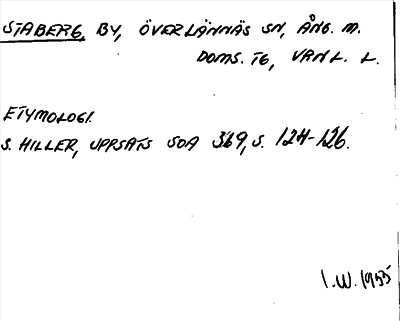 STABERG, BY, ÖVERLÄNNÄS SN, ÅNG. M.
DOMS. TG, VÄN L. L.
ETYMOLOGI.
S. HILLER, UPPSATS SOA 369, S. 124-126.
I.W. 1955